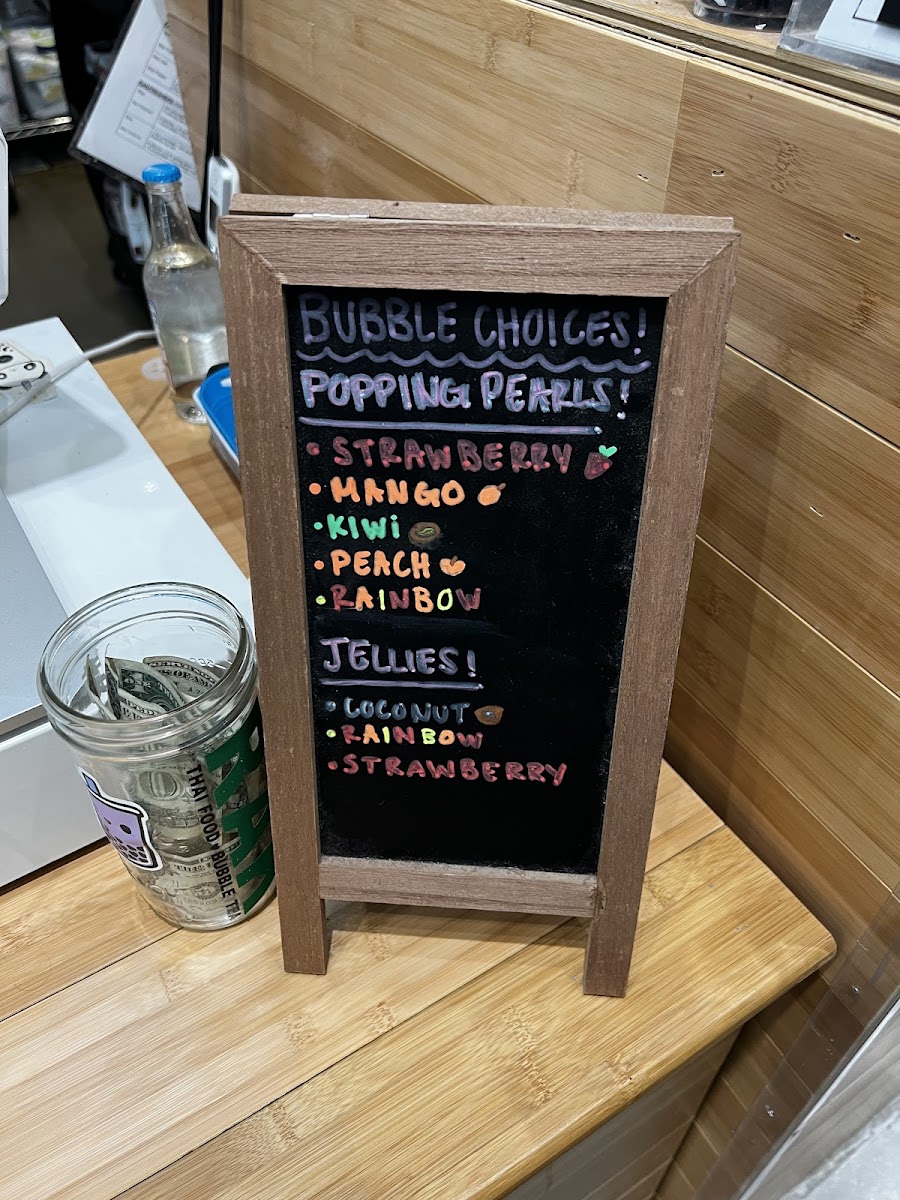 BUBBLE CHOICES!
POPPING PEARLS!
• STRAWBERRY
• MANGO
• KIWI
• PEACH
• RAINBOW
JELLIES!
• COCONUT
• RAINBOW
• STRAWBERRY
THAI FOOD
BUBBLE